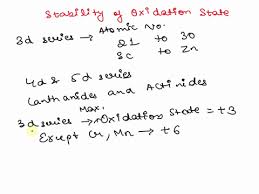 Stability of Oxidation State
3d series → Atomic No.
21 to 30
Sc to Zn
4d & 5d series
Lanthanides and Actinides
Max.
3d series → Oxidation State = +3
Except Cr, Mn → +6